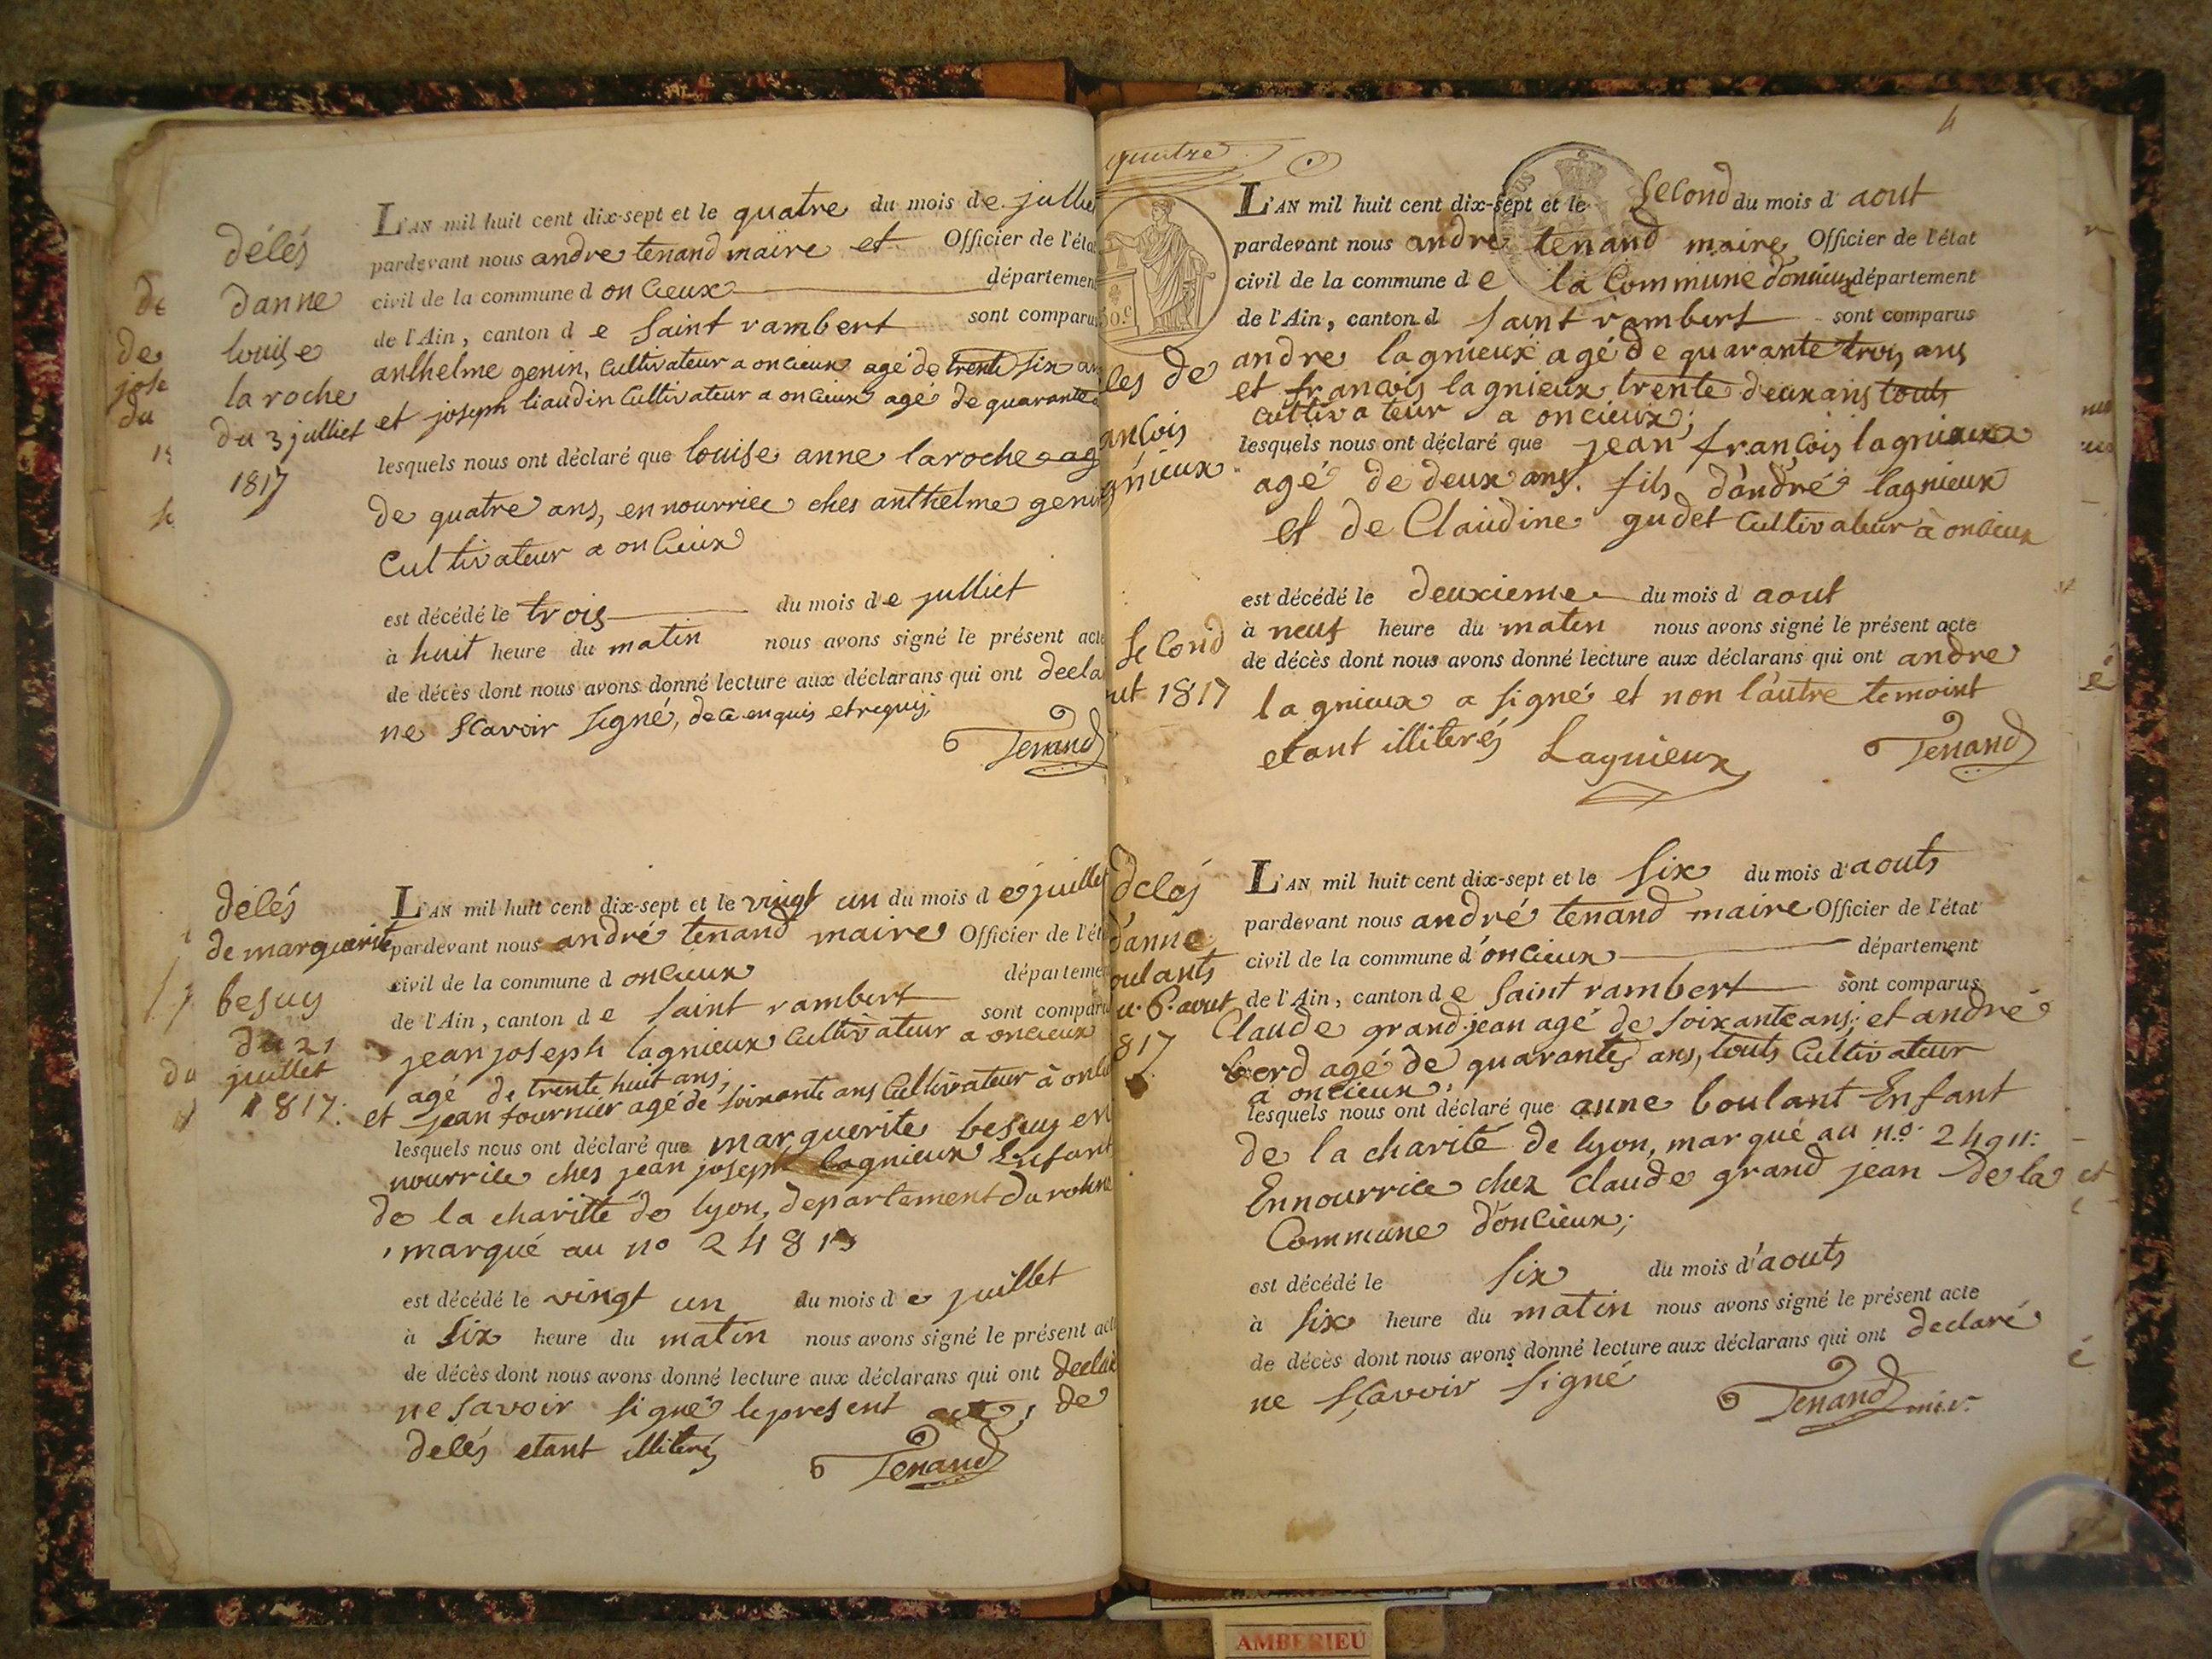 délés
danne
louise
laroche
du 3 julliet
1817
L'AN mil huit cent dix-sept et le quatre du mois de julliet
pardevant nous andre tenand maire et Officier de l'état
civil de la commune d oncieux département
de l'Ain, canton d e saint rambert sont comparus
anthelme genin, cultivateur a oncieux agé de trente six ans
et joseph liaudin Cultivateur a oncieux agé de quarante
lesquels nous ont déclaré que louise anne laroche ag
de quatre ans, en nourrice ches anthelme genin
Cultivateur a oncieux
est décédé le trois du mois de julliet
à huit heure du matin nous avons signé le présent acte
de décès dont nous avons donné lecture aux déclarans qui ont decla
ne scavoir signé, de ce enquis et requis,
Tenand
délés
de marguerite
besuy
du 21
juillet
1817.
L'AN mil huit cent dix-sept et le vingt un du mois d e juillet
pardevant nous andré tenand maire Officier de l'état
civil de la commune d oncieux département
de l'Ain, canton d e saint rambert sont comparus
jean joseph lagnieux Cultivateur a oncieux
agé de trente huit ans;
et jean fournier agé de soixante ans Cultivateur à oncieu
lesquels nous ont déclaré que marguerite besuy en
nourrice ches jean joseph lagnieux Enfant
de la charitté de lyon, departement du rohne
marqué au no 24813
est décédé le vingt un du mois d e juillet
à six heure du matin nous avons signé le présent acte
de décès dont nous avons donné lecture aux déclarans qui ont declaré
ne savoir signé le present acte, de
delés etant illiterés
Tenand
quatre
4
50.c
les de
ançois
gnieux
second
ut 1817
L'AN mil huit cent dix-sept et le second du mois d' aout
pardevant nous andre tenand maire Officier de l'état
civil de la commune d e la Commune doncieux département
de l'Ain, canton d saint rambert sont comparus
andre lagnieux agé de quarante trois ans
et francois lagnieux trente deux ans touts
cultivateur a oncieux;
lesquels nous ont déclaré que jean françois lagnieux
agé de deux ans. fils d'andré lagnieux
et de Claudine gudet Cultivateur à oncieux
est décédé le deuxieme du mois d' aout
à neuf heure du matin nous avons signé le présent acte
de décès dont nous avons donné lecture aux déclarans qui ont andre
lagnieux a signé et non l'autre temoint
etant illiterés Lagnieux Tenand
delés
d'anne
oulants
u 6 aout
817
L'AN mil huit cent dix-sept et le six du mois d'aouts
pardevant nous andré tenand maire Officier de l'état
civil de la commune d'oncieux département
de l'Ain, canton d e saint rambert sont comparus
Claude grand jean agé de soixante ans; et andré
bord agé de quarante ans, touts Cultivateur
a oncieux;
lesquels nous ont déclaré que anne boulant Enfant
de la charité de lyon, marqué au n.o 24911:
En nourrice chez Claude grand jean de la
Commune d'oncieux;
est décédé le six du mois d'aouts
à six heure du matin nous avons signé le présent acte
de décès dont nous avons donné lecture aux déclarans qui ont declaré
ne sçavoir signé
Tenand
AMBERIEU